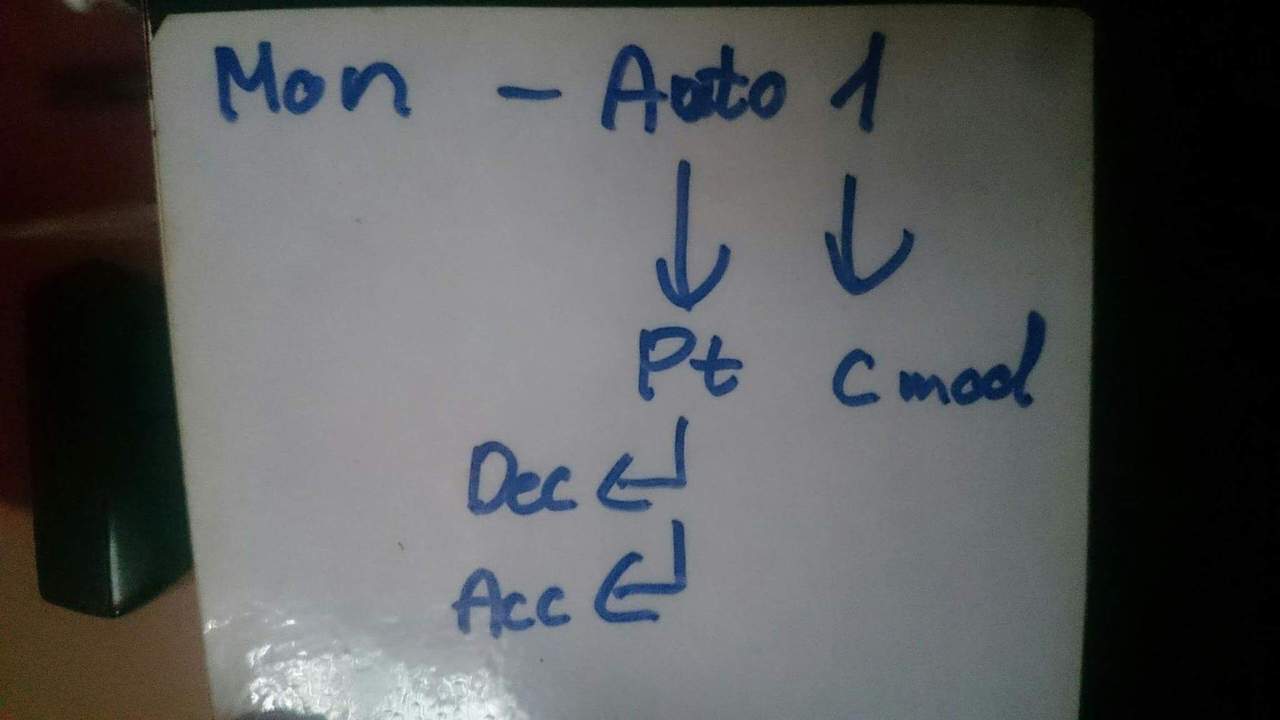 Mon - Auto 1
Pt C mod
Dec
Acc